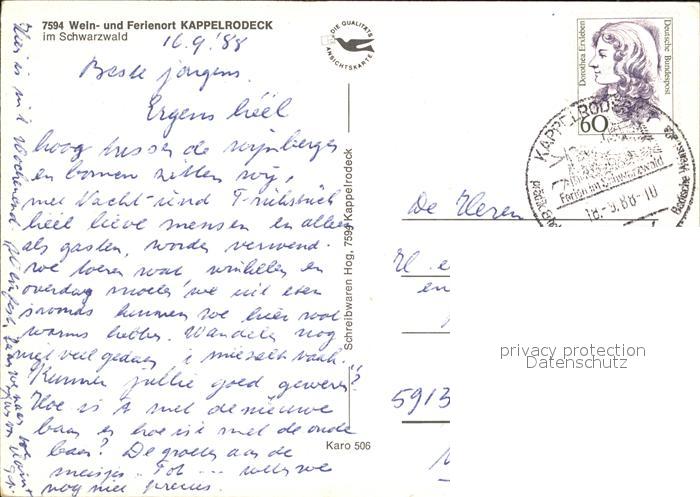 7594 Wein- und Ferienort KAPPELRODECK
im Schwarzwald
16.9.'88
Beste jongens.
Ergens héél
hoog tussen de wijnbergen
en bomen zitten wij,
met Nacht- und Frühstück
heel lieve mensen en alleen
als gasten, worden verwend.
we toeren wat, winkelen en
overdag moeten we uit eten
savonds kunnen we hier wat
warms hebben. Wandelen nog
niet veel gedaan, 't miezelt vaak.
Kunnen jullie goed geweren?
Hoe is 't met de nieuwe
baan en hoe is 't met de oude
baan? De groeten aan de
meisjes. Tot ... weten we
nog niet precies.
Hier is in 't Woochenend
DIE QUALITÄTS
ANSICHTSKARTE
Schreibwaren Hog, 7594 Kappelrodeck
Karo 506
Dorothea Erxleben
Deutsche Bundespost
60
KAPPELRODECK
Ferien im Schwarzwald
18.-9.88-10
Badische
De Heren
en
5913
privacy protection
Datenschutz